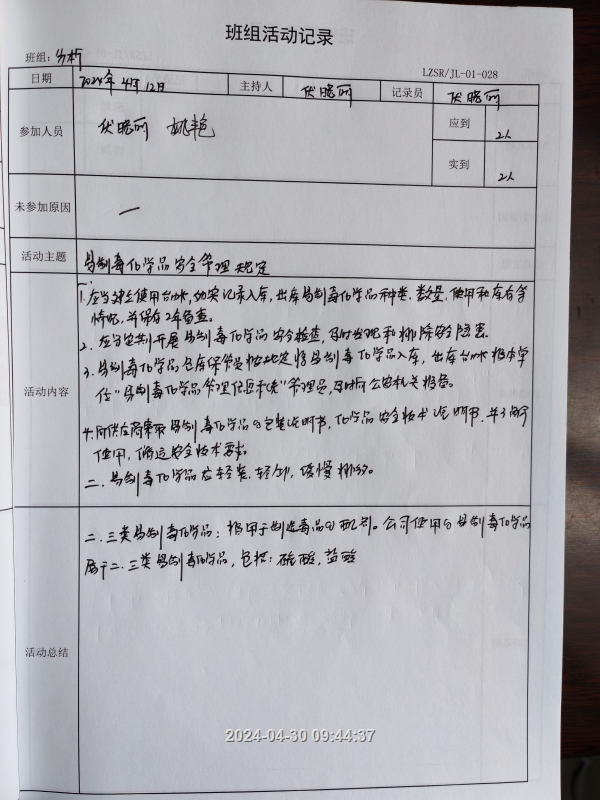 班组活动记录
班组：分析
LZSR/JL-01-028
日期 2024年4月12日 主持人 伏晓丽 记录员 伏晓丽
参加人员 伏晓丽 姚艳 应到 2人
实到 2人
未参加原因 —
活动主题 易制毒化学品安全管理规定
活动内容
一.
1.应当建立使用台帐，如实记录入库，出库易制毒化学品种类、数量、使用和库存等
情况，并保存2年备查。
2.应当定期开展易制毒化学品安全检查，及时发现和排除安全隐患。
3.易制毒化学品仓库保管员按规定将易制毒化学品入库，出库台帐报本单
位"易制毒化学品管理信息系统"管理员，及时向公安机关报备。
4.向供应商索取易制毒化学品的包装说明书，化学品安全技术说明书，并了解
使用，储运安全技术要求。
二.易制毒化学品应轻装、轻卸，缓慢排放。
活动总结
二.三类易制毒化学品：指用于制造毒品的配剂。公司使用的易制毒化学品
属于二.三类易制毒化学品，包括：硫酸，盐酸
2024-04-30 09:44:37